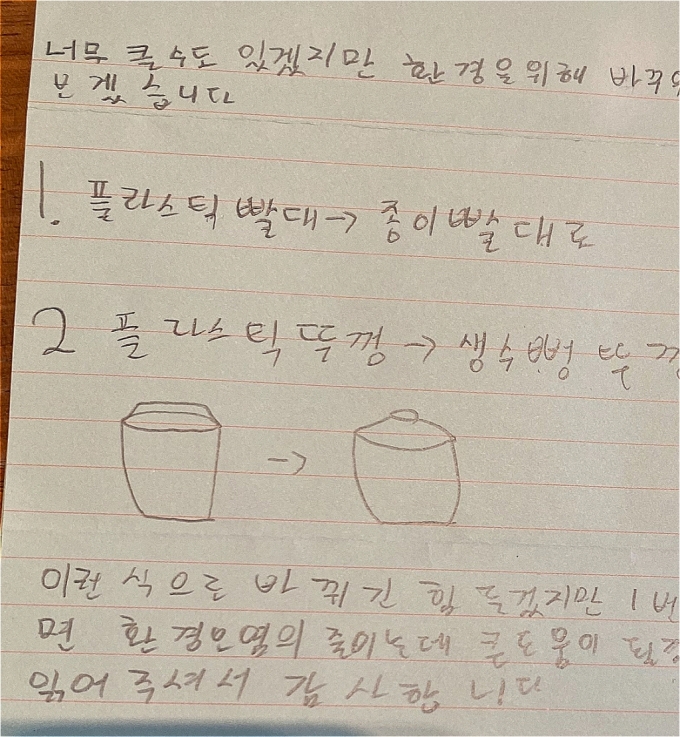 너무 클수도 있겠지만 환경을위해
보겠습니다
1. 플라스틱 빨대→ 종이빨대로
2 플라스틱뚜껑→ 생수병 뚜껑
→
이런 식으로 바꾸긴 힘들겠지만 1
면 환경오염의 줄이는데 큰도움이
읽어주셔서 감사합니다